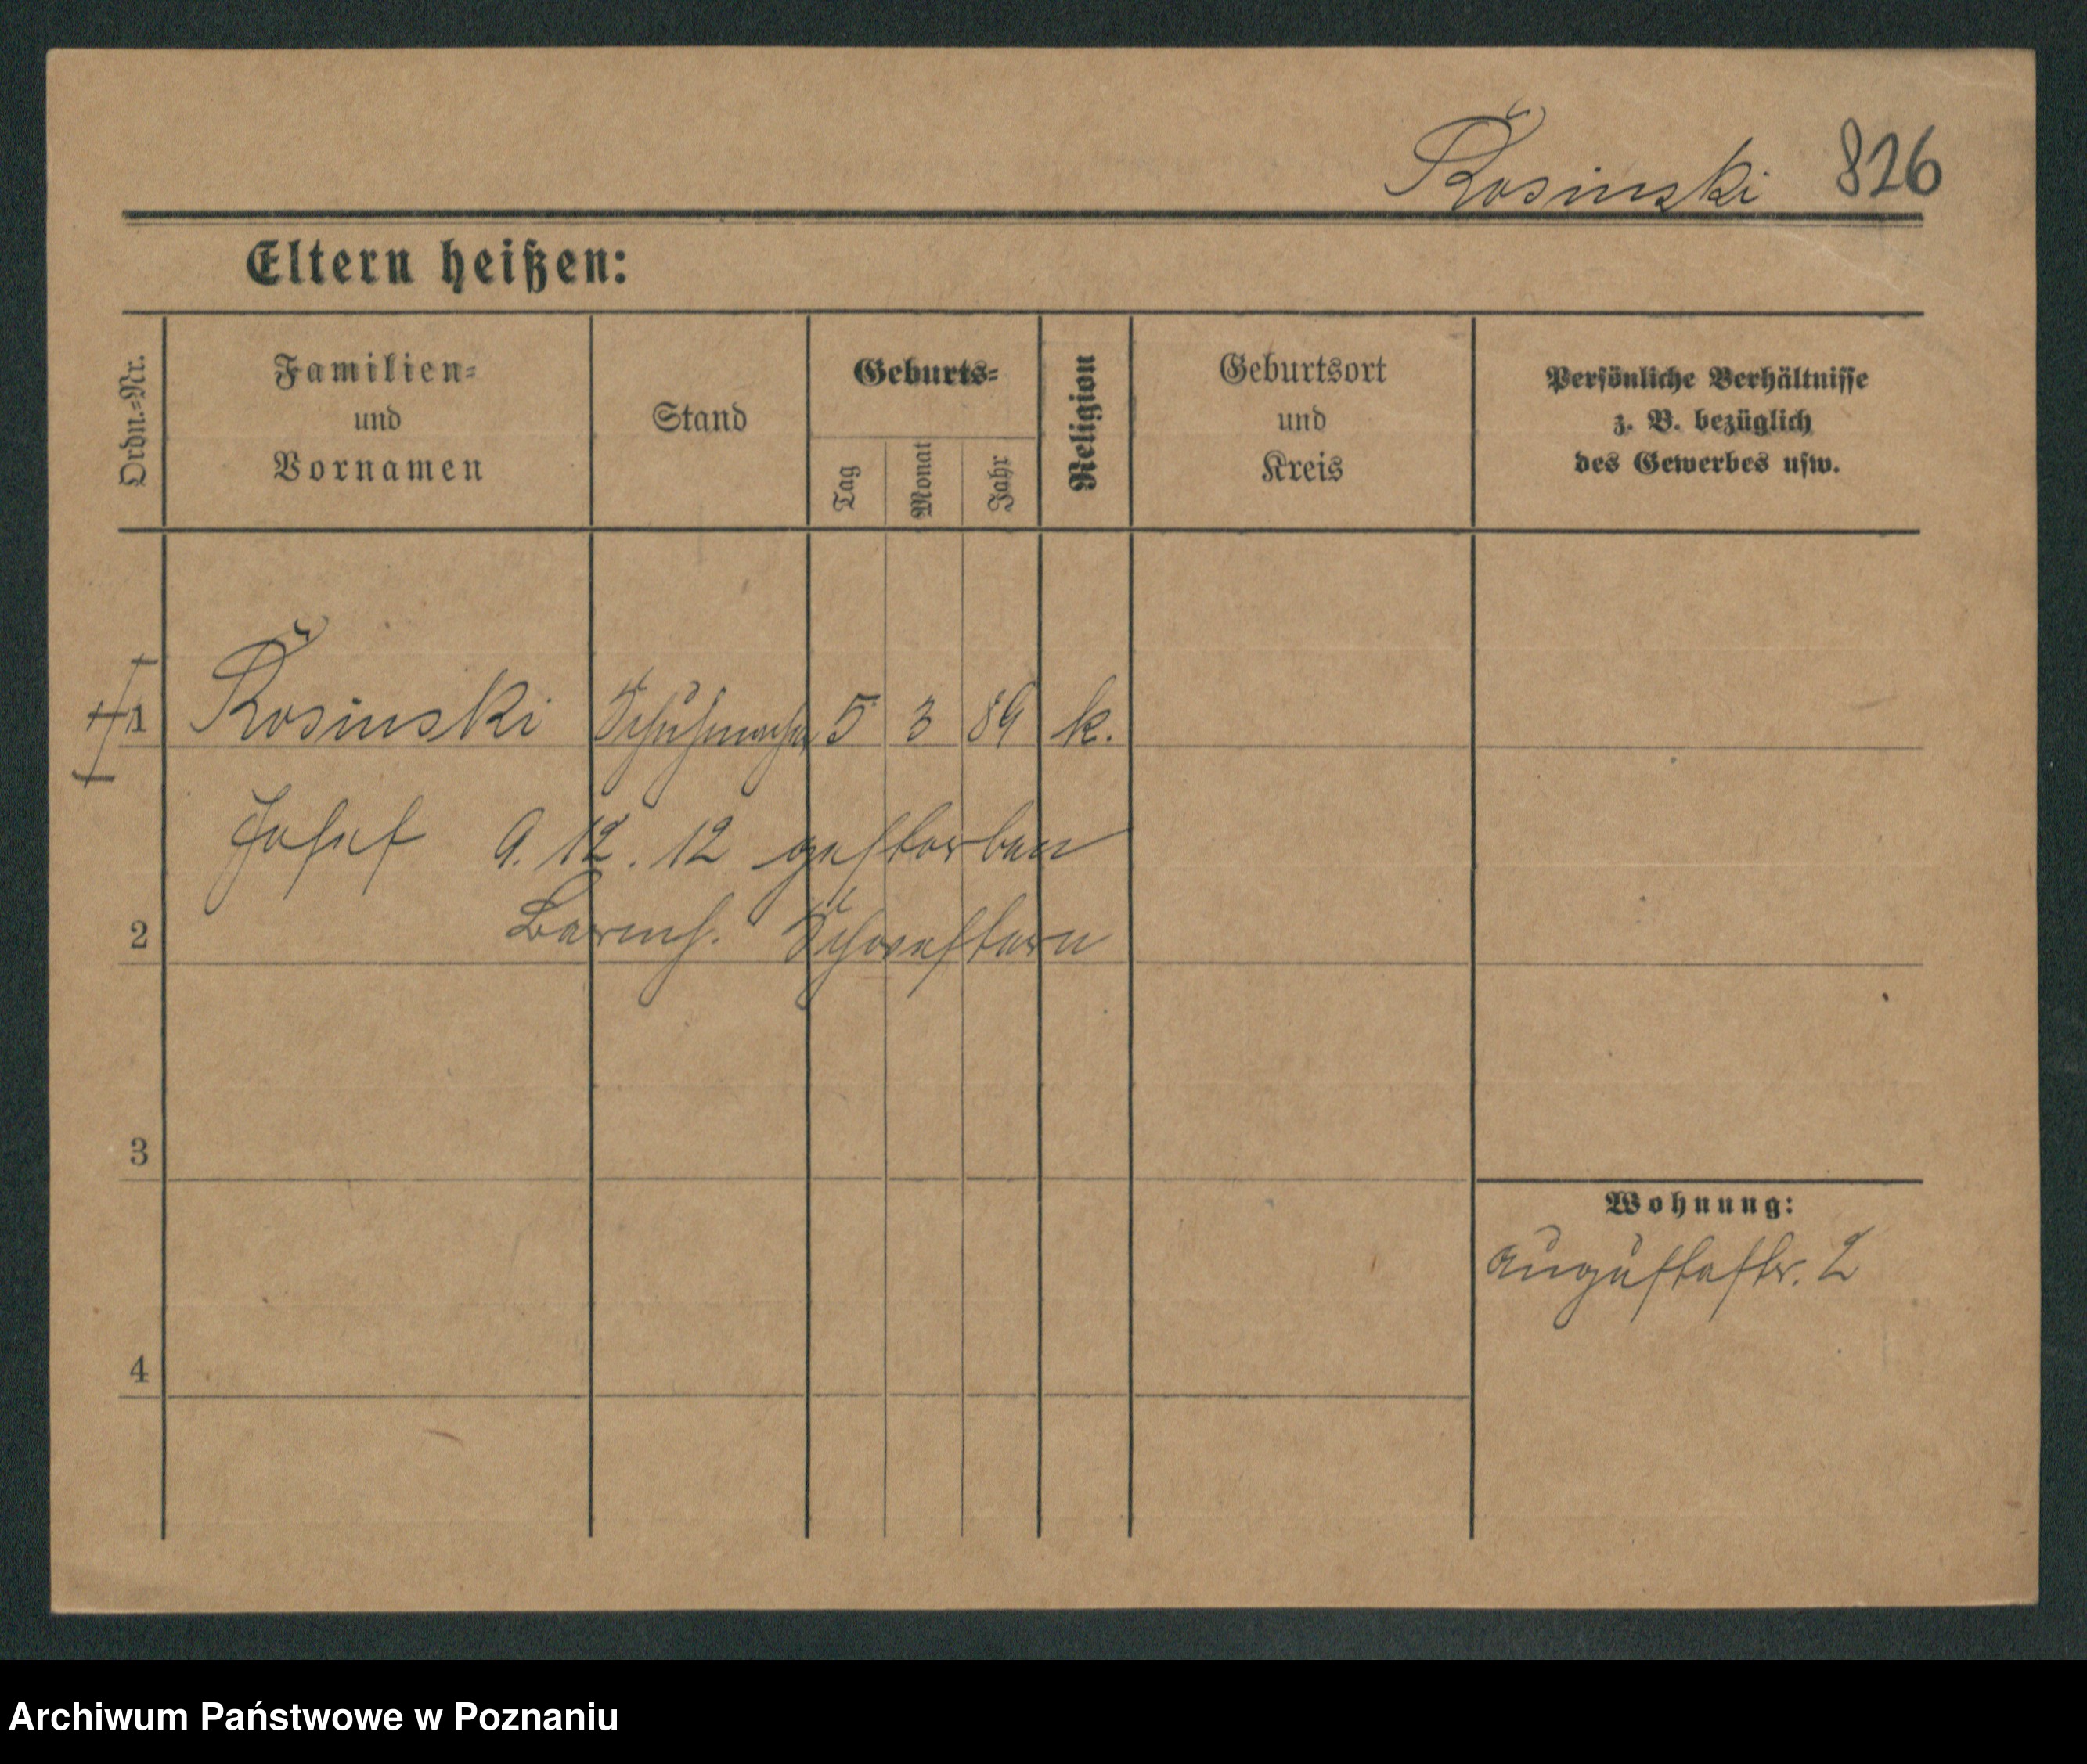 Rosinski 826
Eltern heißen:
Ordn.-Nr.
Familien-
und
Vornamen
Stand
Geburts-
Tag
Monat
Jahr
Religion
Geburtsort
und
Kreis
Persönliche Verhältnisse
z. B. bezüglich
des Gewerbes usw.
1 Rosinski Schuhmacher 5 3 89 k.
Josef 9. 12. 12 gestorben
2 Barmh. Schwestern
3
Wohnung:
Augustastr. 2
4
Archiwum Państwowe w Poznaniu